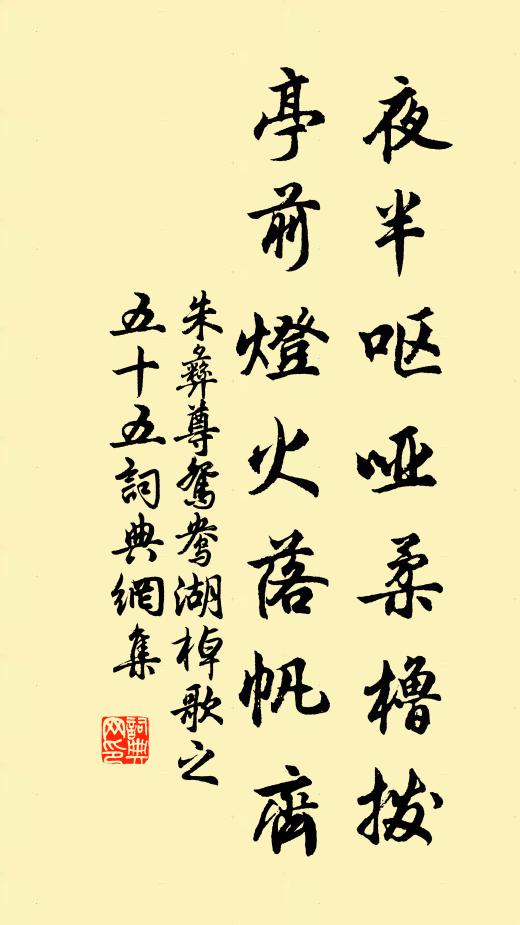 夜半呕哑柔橹拨
亭前燈火落帆齊
朱彝尊鴛鴦湖棹歌之
五十五詞典網集
詞典網印